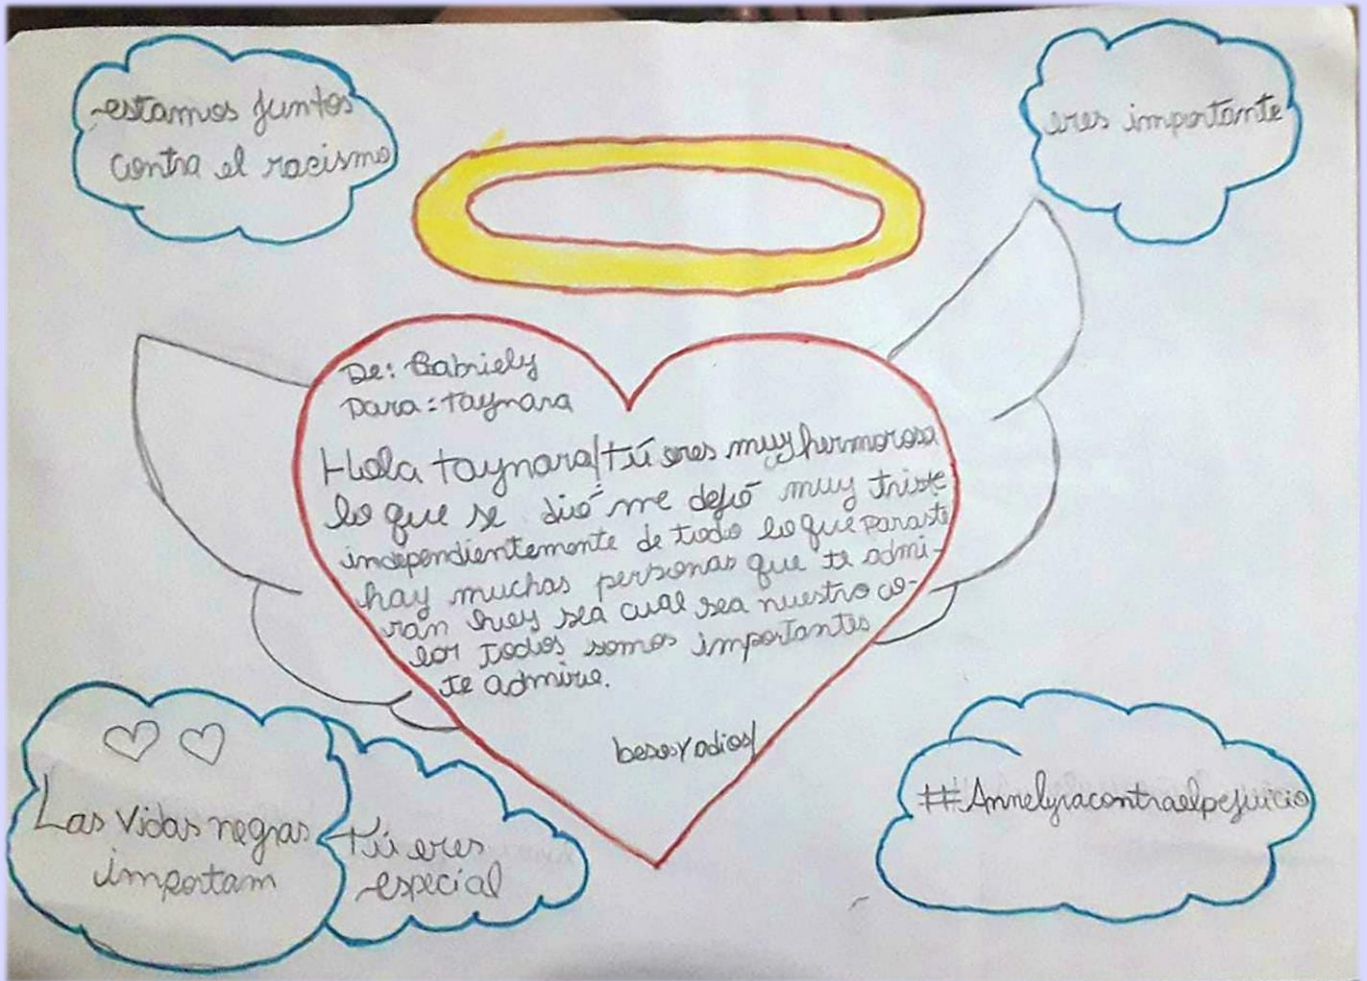 estamos juntos
contra el racismo
eres importante
De: Gabriely
Para: Taynara
Hola taynara/tú eres muy hermorosa
lo que se dió me dejó muy triste
independientemente de todo lo que paraste
hay muchas personas que te admi-
ran sea cual sea nuestro co-
lor todos somos importantes
te admire.
besos y adios/
Las vidas negras
importam
Tú eres
especial
##Annelyracontraelpejuicio